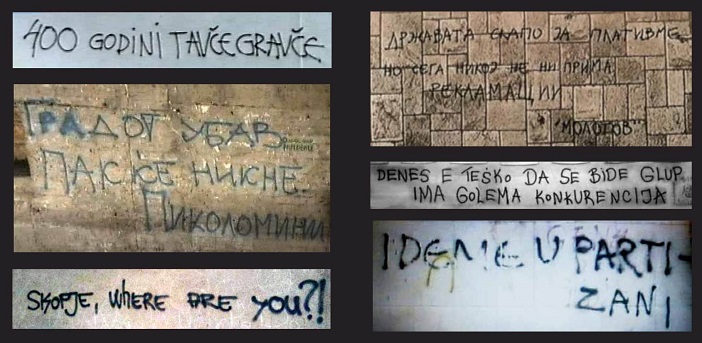 400 GODINI TAVČEGRAVČE
ГРАДОТ УБАВ
ПАК ЌЕ НИКНЕ
ПИКОЛОМИНИ
SKOPJE, WHERE ARE YOU?!
ДРЖАВАТА СКАПО ЈА ПЛАТИВМЕ
НО СЕГА НИКОЈ НЕ НИ ПРИМА
РЕКЛАМАЦИИ
"МОЛОТОВ"
DENES E TEŠKO DA SE BIDE GLUP
IMA GOLEMA KONKURENCIJA
IDEME U PARTI-
ZANI